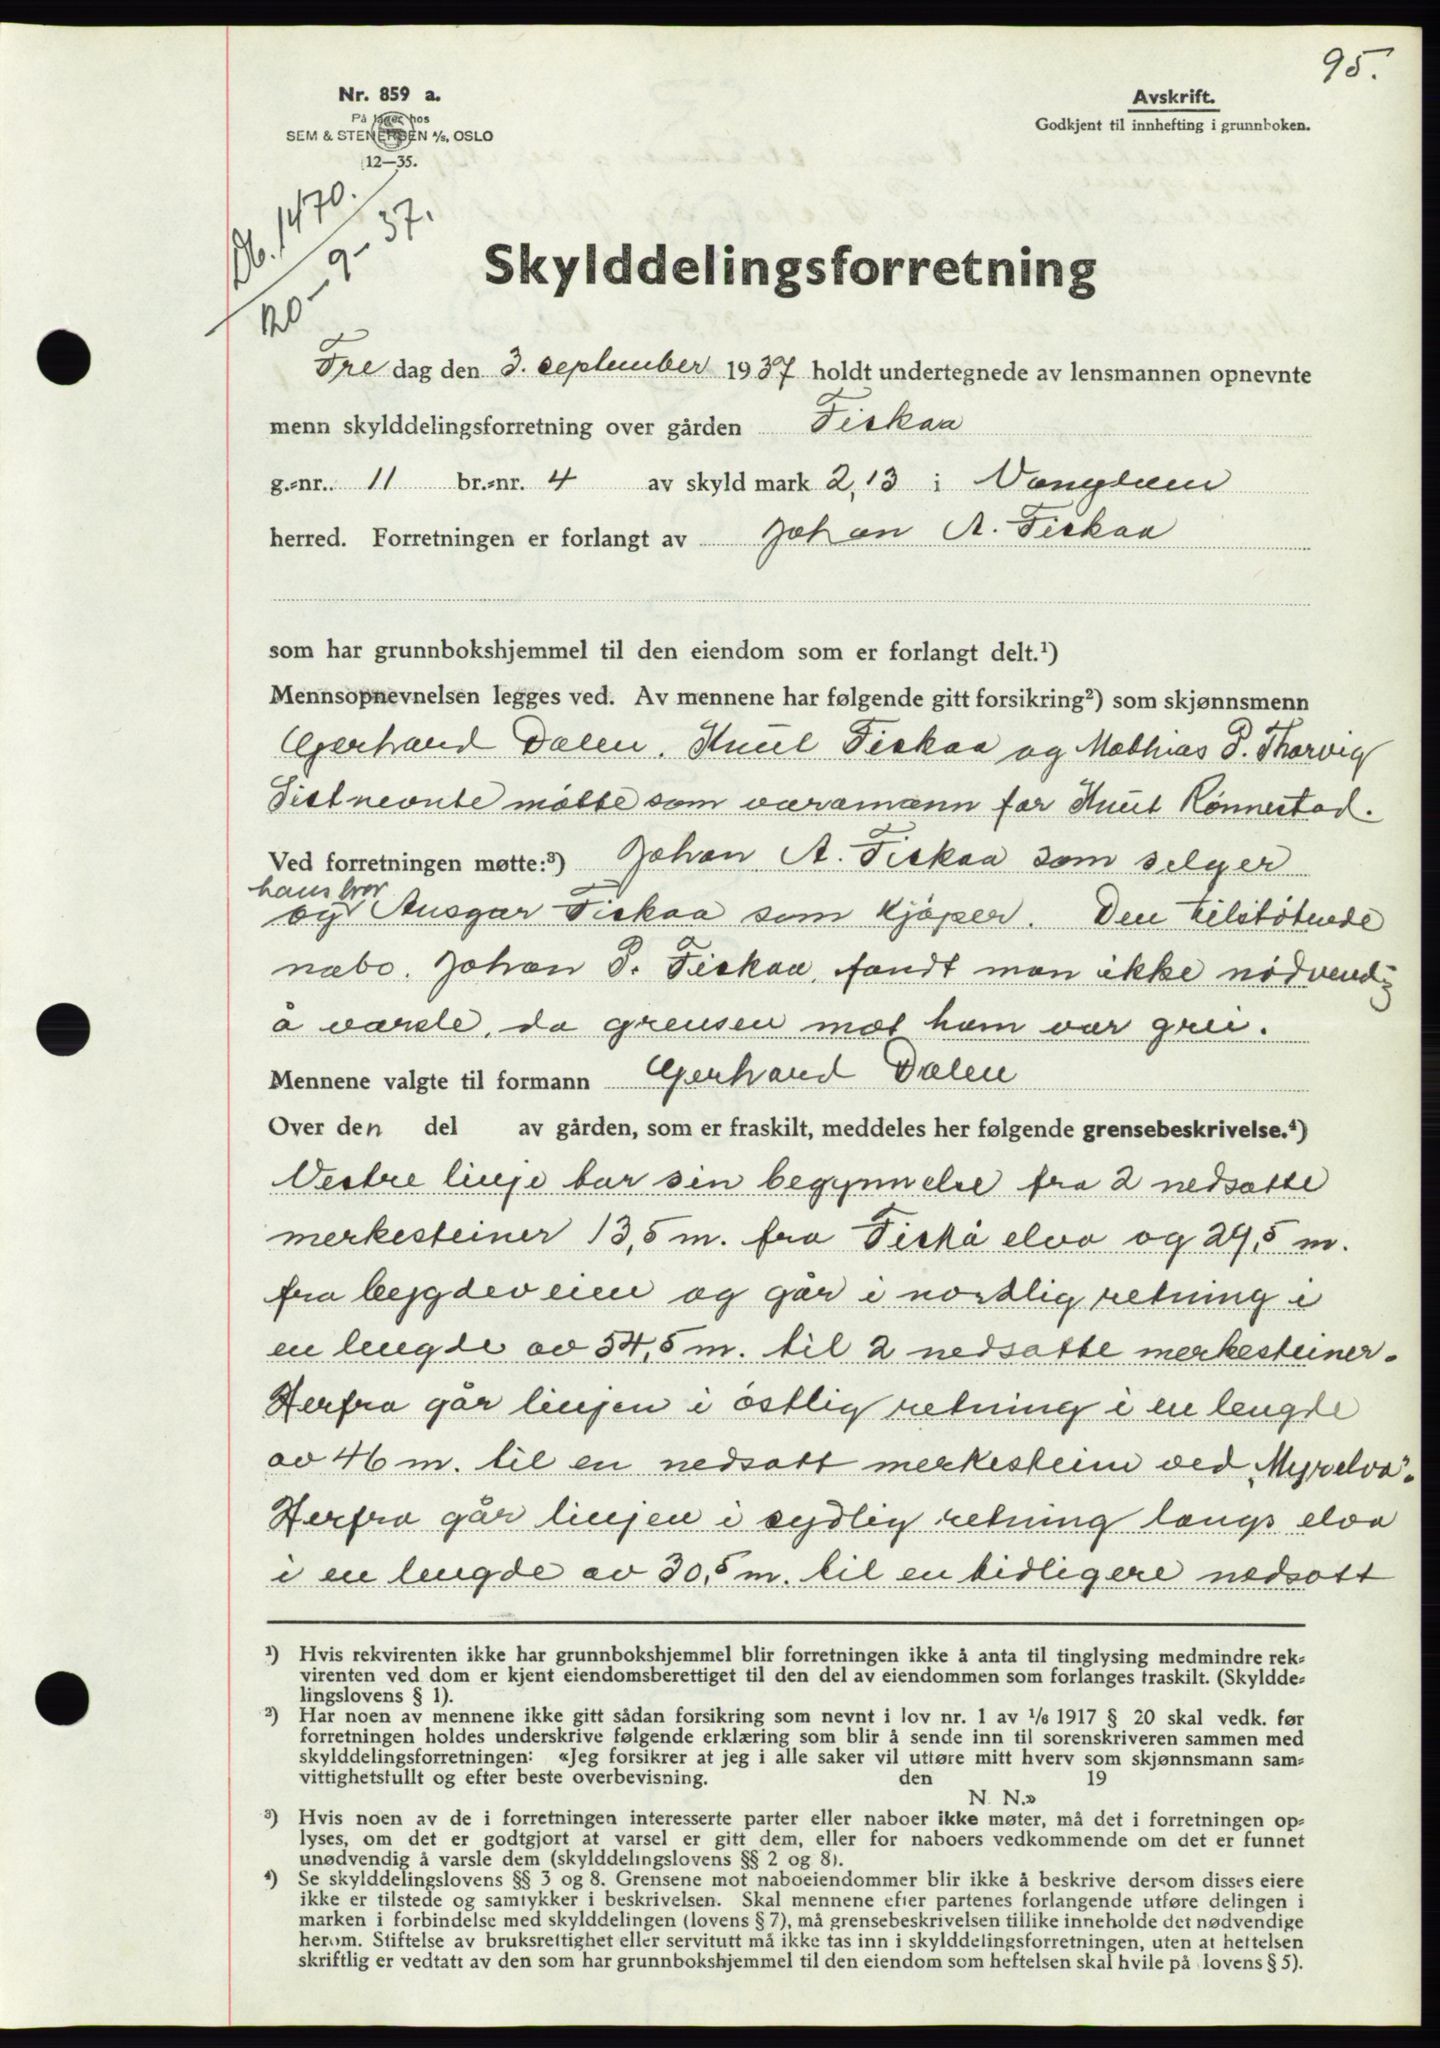 95.
Nr. 859 a.
På lager hos
SEM & STENERSEN A/S, OSLO
12—35.
Avskrift.
Godkjent til innhefting i grunnboken.
Db. 1470.
20-9-37.
Skylddelingsforretning
Fre dag den 3. september 1937 holdt undertegnede av lensmannen opnevnte
menn skylddelingsforretning over gården Fiskaa
g.=nr. 11 br.=nr. 4 av skyld mark 2,13 i Vanylven
herred. Forretningen er forlangt av Johan A. Fiskaa
som har grunnbokshjemmel til den eiendom som er forlangt delt.¹)
Mennsopnevnelsen legges ved. Av mennene har følgende gitt forsikring²) som skjønnsmenn
Gerhard Dalen, Knut Fiskaa og Mathias P. Thorvig
Sistnevnte møtte som varamann for Knut Rønnestad.
Ved forretningen møtte:³) Johan A. Fiskaa som selger
hans bror
og Ansgar Fiskaa som kjøper. Den tilstøtende
nabo, Johan P. Fiskaa, fandt man ikke nødvendig
å varsle, da grensen mot ham var grei.
Mennene valgte til formann Gerhard Dalen
Over den del av gården, som er fraskilt, meddeles her følgende grensebeskrivelse.⁴)
Vestre linje har sin begynnelse fra 2 nedsatte
merkesteiner 13,5 m. fra Fiskå elva og 29,5 m.
fra bygdeveien og går i nordlig retning i
en lengde av 54,5 m. til 2 nedsatte merkesteiner.
Herfra går linjen i østlig retning i en lengde
av 46 m. til en nedsatt merkestein ved „Myrelva".
Herfra går linjen i sydlig retning langs elva
i en lengde av 30,5 m. til en tidligere nedsatt
¹) Hvis rekvirenten ikke har grunnbokshjemmel blir forretningen ikke å anta til tinglysing medmindre rek=
virenten ved dom er kjent eiendomsberettiget til den del av eiendommen som forlanges fraskilt. (Skyldde=
lingslovens § 1).
²) Har noen av mennene ikke gitt sådan forsikring som nevnt i lov nr. 1 av 1/6 1917 § 20 skal vedk. før
forretningen holdes underskrive følgende erklæring som blir å sende inn til sorenskriveren sammen med
skylddelingsforretningen: «Jeg forsikrer at jeg i alle saker vil utføre mitt hverv som skjønnsmann sam=
vittighetsfullt og efter beste overbevisning. den 19
N. N.»
³) Hvis noen av de i forretningen interesserte parter eller naboer ikke møter, må det i forretningen op=
lyses, om det er godtgjort at varsel er gitt dem, eller for naboers vedkommende om det er funnet
unødvendig å varsle dem (skylddelingslovens §§ 2 og 8).
⁴) Se skylddelingslovens §§ 3 og 8. Grensene mot naboeiendommer blir ikke å beskrive dersom disses eiere
ikke er tilstede og samtykker i beskrivelsen. Skal mennene efter partenes forlangende utføre delingen i
marken i forbindelse med skylddelingen (lovens § 7), må grensebeskrivelsen tillike inneholde det nødvendige
herom. Stiftelse av bruksrettighet eller servitutt må ikke tas inn i skylddelingsforretningen, uten at heftelsen
skriftlig er vedtatt av den som har grunnbokshjemmel til den eiendom som heftelsen skal hvile på lovens § 5).